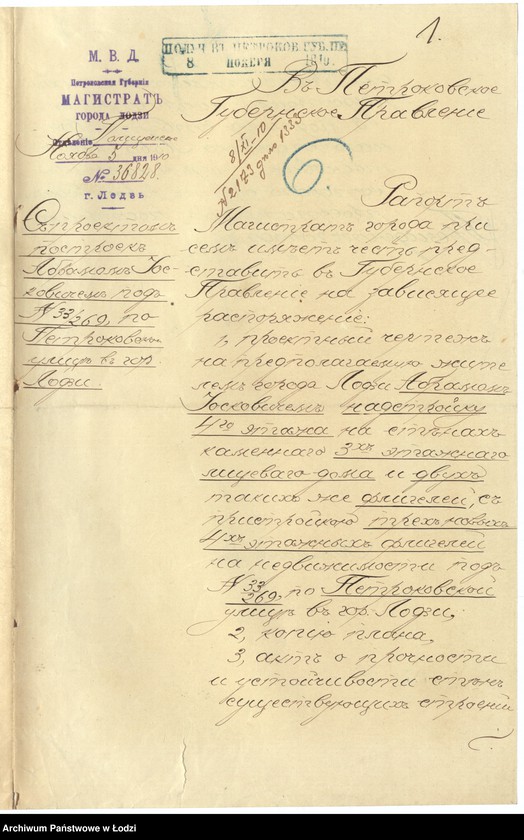 1.
ПОЛУЧ. ВЪ ПЕТРОКОВ. ГУБ. ПР.
8 НОЯБРЯ 1910.
М. В. Д.
Петроковская Губернія
МАГИСТРАТЪ
ГОРОДА ЛОДЗИ
Отдѣленіе
Ноября 5 дня 1910
№ 36828.
г. Лодзь
Въ Петроковское
Губернское Правленіе
8/XI-10
6.
Съ проектомъ
построекъ
Абрамомъ Іос-
ковичемъ подъ
№ 33/269, по
Петроковской
улицѣ въ гор.
Лодзи.
Рапортъ
Магистратъ города при
семъ имѣетъ честь пред-
ставить въ Губернское
Правленіе на зависящее
распоряженіе:
1, проектный чертежъ
на предполагаемую жите
лемъ города Лодзи Абрамомъ
Іосковичемъ надстройку
4го этажа на стѣнахъ
каменнаго 3хъ этажнаго
лицеваго дома и двухъ
такихъ же флигелей, съ
пристройкою трехъ новыхъ
4хъ этажныхъ флигелей
на недвижимости подъ
№ 33/269, по Петроковской
улицѣ въ гор. Лодзи,
2, копію плана,
3, актъ о прочности
и устойчивости стѣнъ
существующихъ строеній
Archiwum Państwowe w Łodzi